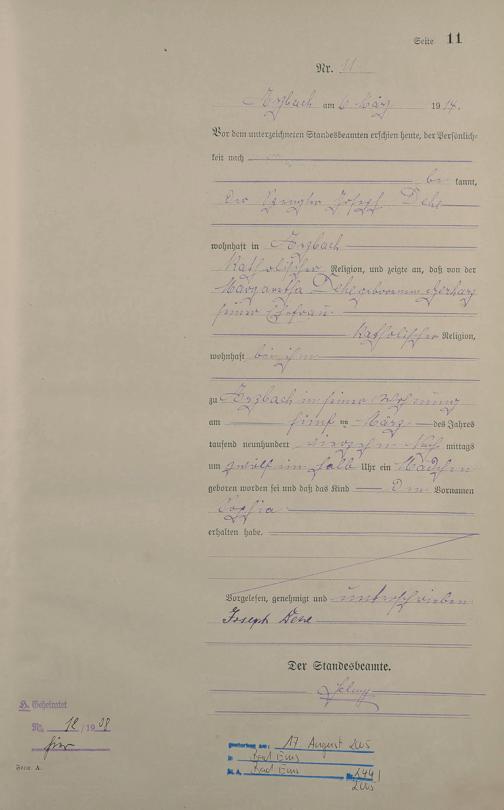 Seite 11
Nr. 11
Arzbach am 6 März 1914.
Vor dem unterzeichneten Standesbeamten erschien heute, der Persönlich-
keit nach
be kannt,
der Joseph Dehe
wohnhaft in Arzbach
Katholischer Religion, und zeigte an, daß von der
Margaretha Dehe geborenen Gerharz
seiner Ehefrau
Katholischer Religion,
wohnhaft bei ihm
zu Arzbach in seiner Wohnung
am fünf ten März des Jahres
tausend neunhundert vierzehn Nach mittags
um zwölf ein halb Uhr ein Mädchen
geboren worden sei und daß das Kind den Vornamen
Sophia
erhalten habe.
Vorgelesen, genehmigt und unterschrieben
Joseph Dehe
Der Standesbeamte.
H. Geheiratet
Nr. 12/1938
hier
Form. A.
gestorben am: 17. August 2005
in Bad Ems
St. A. Bad Ems Nr. 244/
2005